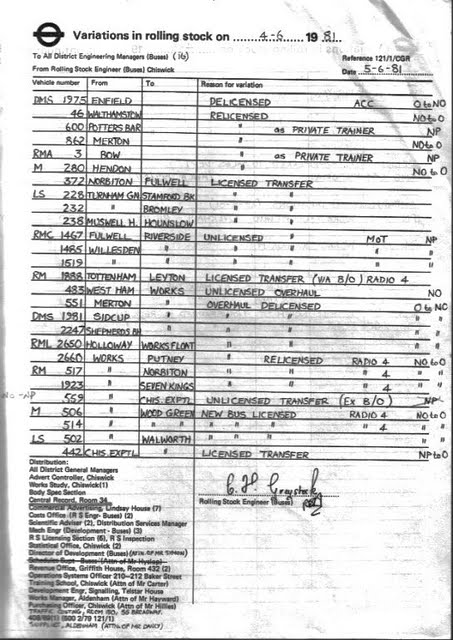 Variations in rolling stock on 4-6 1981
To All District Engineering Managers (Buses) (16)
Reference 121/1/CGR
From Rolling Stock Engineer (Buses) Chiswick
Date 5-6-81
Vehicle number From To Reason for variation
DMS 1975 ENFIELD DELICENSED ACC O to NO
46 WALTHAMSTOW RELICENSED NO to O
600 POTTERS BAR " as PRIVATE TRAINER NP
862 MERTON " NO to O
RMA 3 BOW " as PRIVATE TRAINER NP
M 280 HENDON " NO to O
372 NORBITON FULWELL LICENSED TRANSFER
LS 228 TURNHAM GN STAMFORD BK " "
232 " BROMLEY " "
238 MUSWELL H. HOUNSLOW " "
RMC 1467 FULWELL RIVERSIDE UNLICENSED " MOT NP
1485 WILLESDEN " " " " "
1519 " " " " " "
RM 1888 TOTTENHAM LEYTON LICENSED TRANSFER (WA B/O) RADIO 4
483 WEST HAM WORKS UNLICENSED OVERHAUL NO
551 MERTON " OVERHAUL DELICENSED O to NO
DMS 1981 SIDCUP " " " " "
2247 SHEPHERDS BH " " " " "
RML 2650 HOLLOWAY WORKS FLOAT " " " "
2660 WORKS PUTNEY " RELICENSED RADIO 4 NO to O
RM 517 " NORBITON " " " 4 " "
1923 " SEVEN KINGS " " " 4 " "
NO-NP 559 " CHIS. EXPTL UNLICENSED TRANSFER (Ex B/O) NP
M 506 " WOOD GREEN NEW BUS LICENSED RADIO 4 NO to O
514 " " " " " " " 4 " "
LS 502 " WALWORTH " " " " "
442 CHIS. EXPTL " LICENSED TRANSFER NP to O
Distribution:
All District General Managers
Advert Controller, Chiswick
Works Study, Chiswick (1)
Body Spec Section
Central Record, Room 34
Commercial Advertising, Lindsay House (7)
Costs Office (R S Engr- Buses) (2)
Scientific Adviser (2), Distribution Services Manager
Mech Engr (Development - Buses) (3)
R S Licensing Section (6), R S Inspection
Statistical Office, Chiswick (2)
Director of Development (Buses)
Schedules Supt - Buses (Attn of Mr Hyslop)
Revenue Office, Griffith House, Room 432 (2)
Operations Systems Officer 210-212 Baker Street
Training School, Chiswick (Attn of Mr Carter)
Development Engr, Signalling, Telstar House
Works Manager, Aldenham (Attn of Mr Hayward)
Purchasing Officer, Chiswick (Attn of Mr Hillies)
TRAFFIC CONTROL, ROOM 100, 55 BROADWAY.
(500 2/79 121/1)
ALDENHAM (ATTN. OF MR DAILY)
Rolling Stock Engineer (Buses)